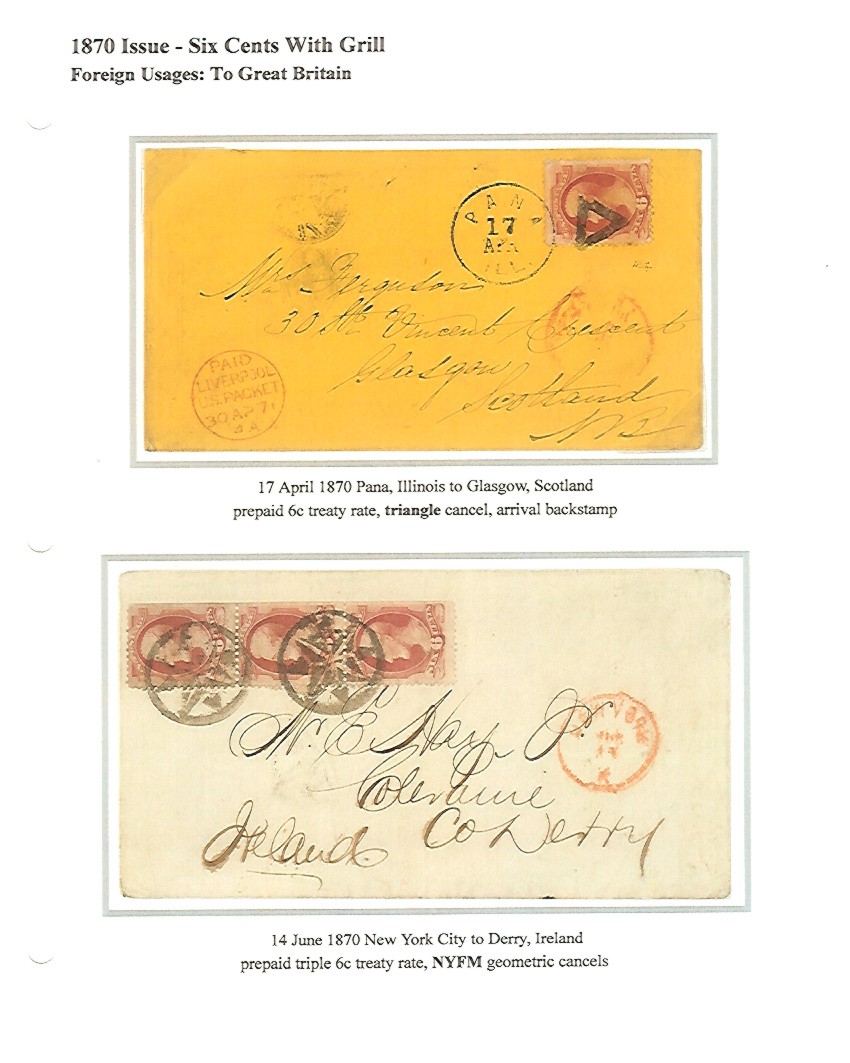 1870 Issue - Six Cents With Grill
Foreign Usages: To Great Britain
PANA
17
APR
ILL.
Mrs Ferguson
30 St Vincent Crescent
Glasgow
Scotland
NB
PAID
LIVERPOOL
U.S. PACKET
30 AP 71
4 A
17 April 1870 Pana, Illinois to Glasgow, Scotland
prepaid 6c treaty rate, triangle cancel, arrival backstamp
W. E. Hay Jr
Coleraine
Co Derry
Ireland
NEW YORK
14 June 1870 New York City to Derry, Ireland
prepaid triple 6c treaty rate, NYFM geometric cancels